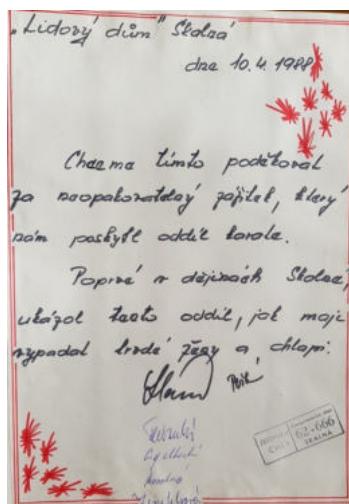 „Lidový dům" Skalná
dne 10.4.1988
Chceme tímto poděkovat
za neopakovatelný zážitek, který
nám poskytl oddíl karate.
Poprvé v dějinách Skalné,
ukázal tento oddíl, jak mají
vypadat tvrdé ženy a chlapi.
62-666
SKALNÁ